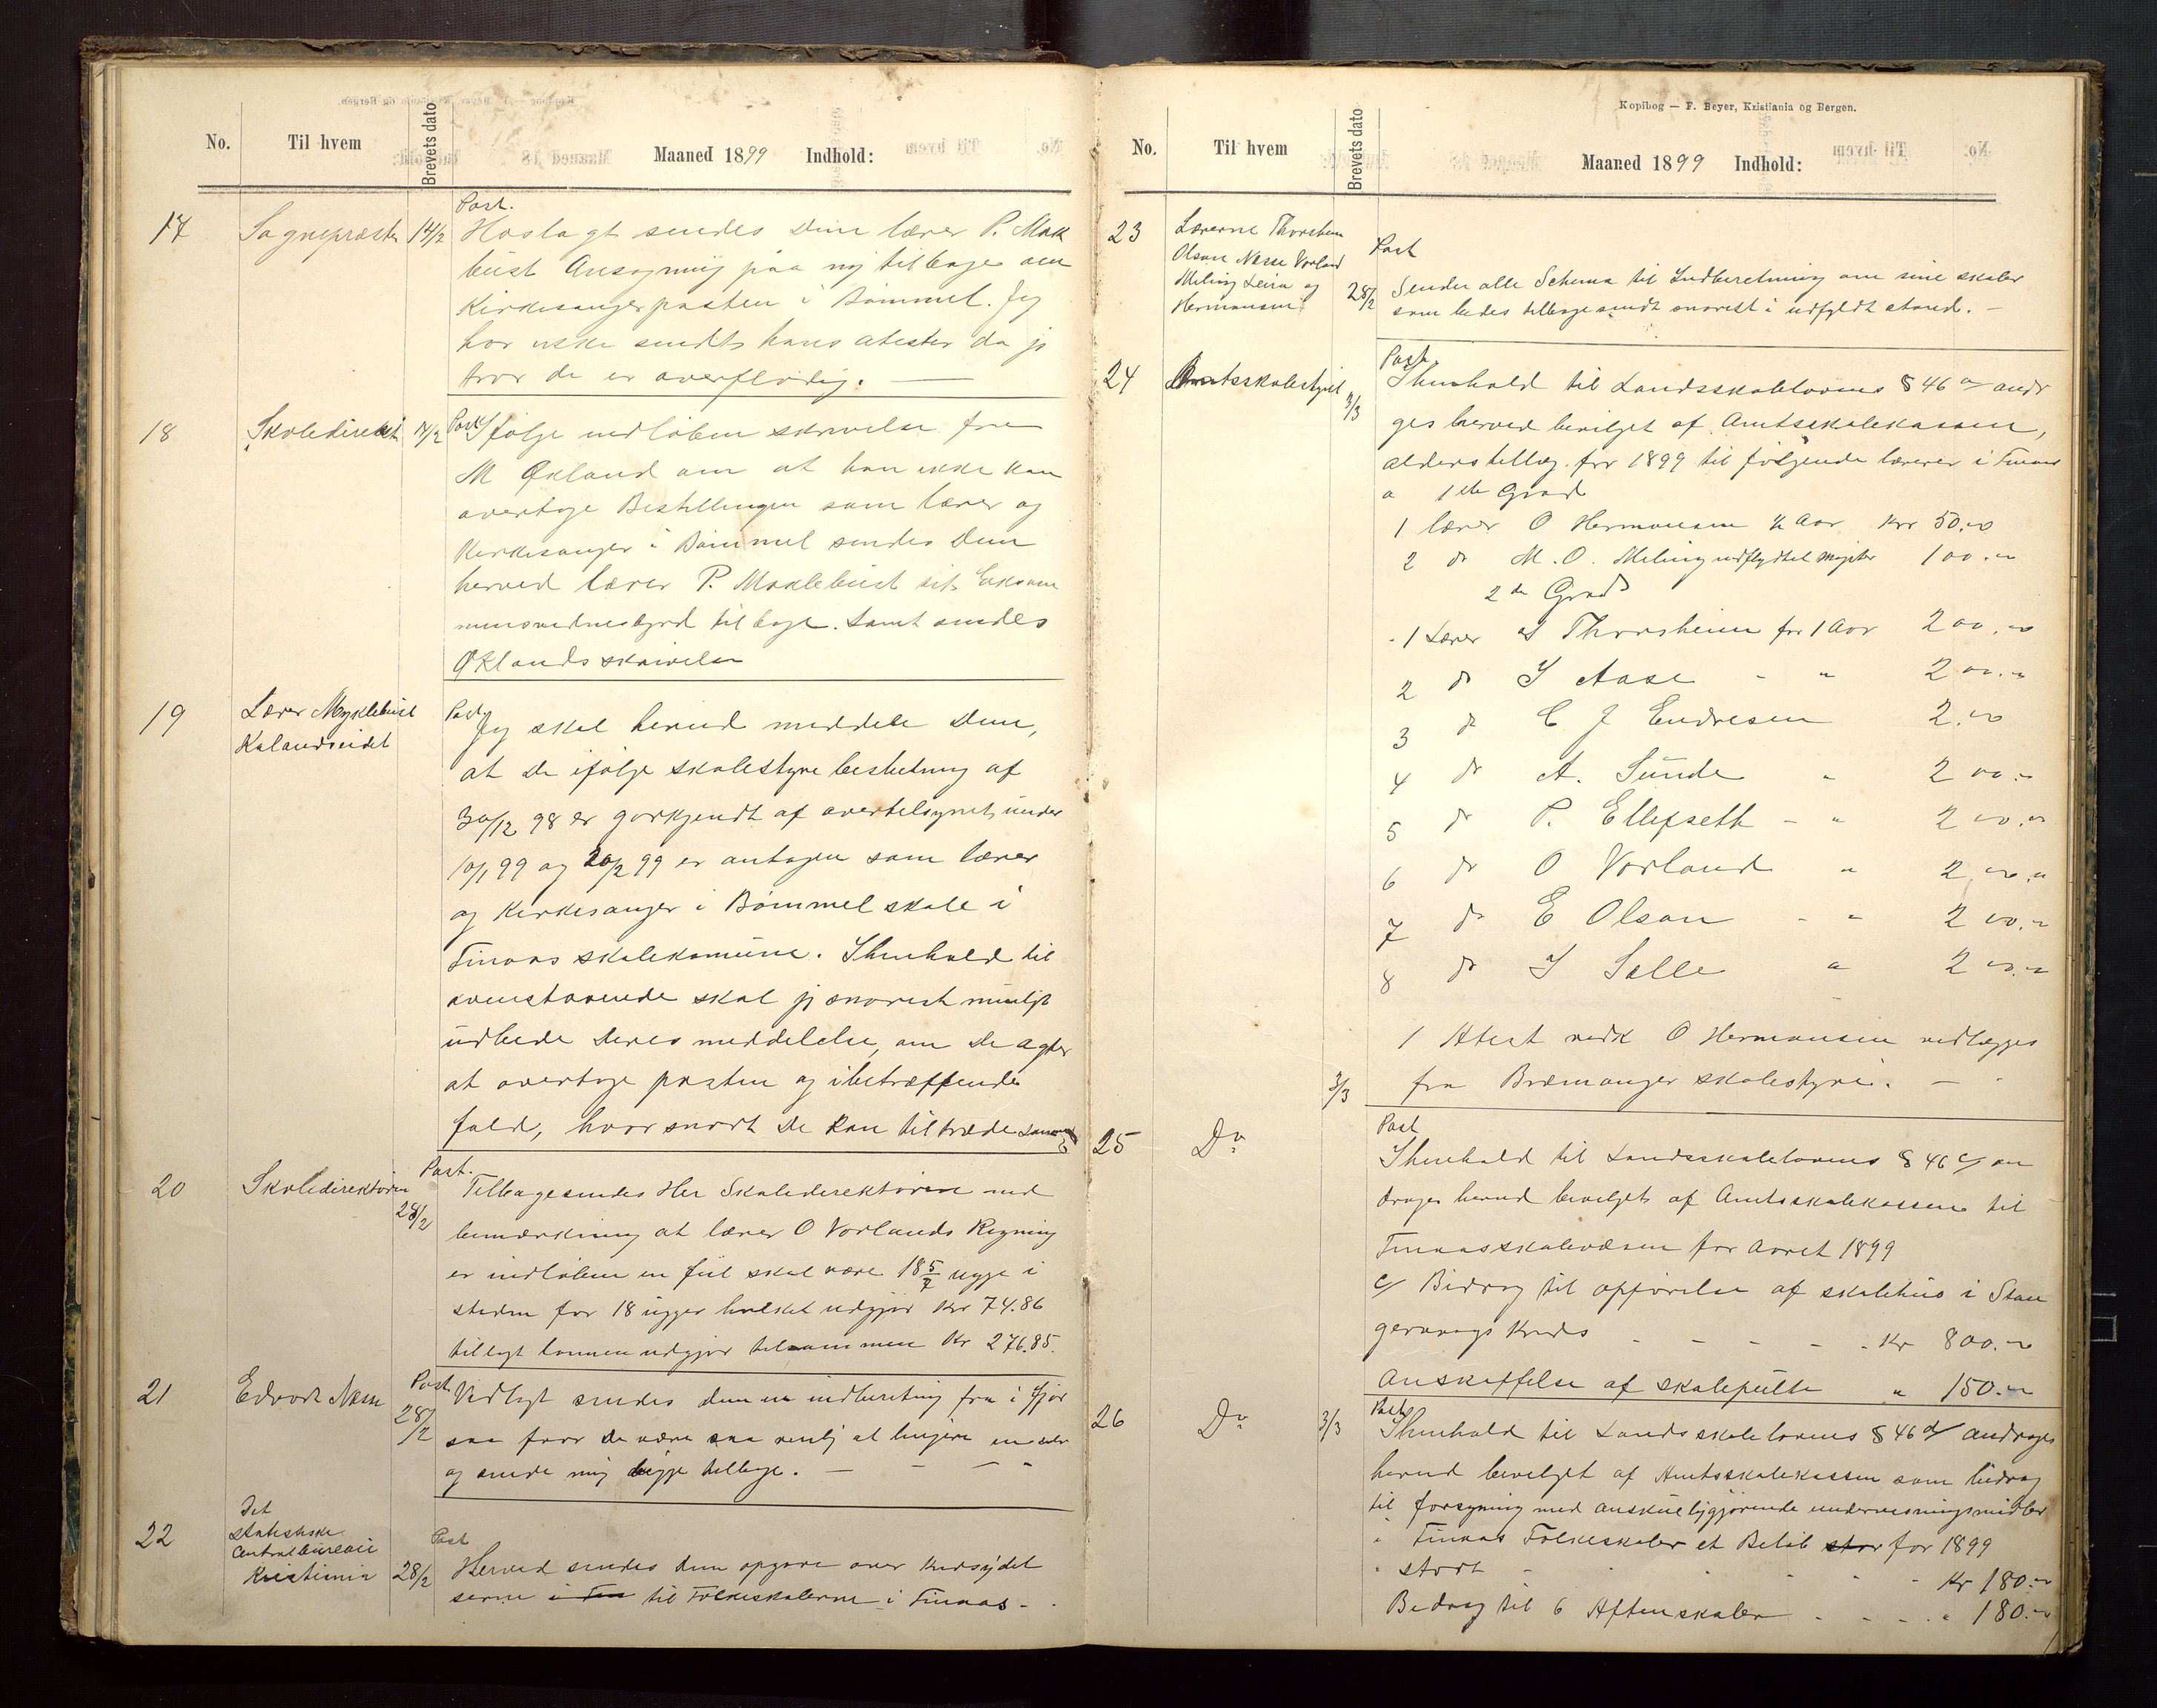 No. Til hvem Brevets dato Maaned 1899 Indhold:
Post.
17 Sognepræsten 14/2 Hoslagt sendes Dem lærer P. Mæk
lebust Ansøgning paa ny tilbage om
Kirkesangerposten i Bømmel. Jeg
har ikke sendt hans atester da jeg
tror de er overflødig. —
18 Skoledirekt 14/2 Post Ifølge indløben skrivelse fra
M Økland om at han ikke kan
overtage Bestillingen som lærer og
Kirkesanger i Bømmel sendes Dem
herved lærer P. Møklebust sit Eksam
mensvidnesbyrd tilbage. Samt sendes
Øklands skrivelse
19 Lærer Myklebust
Kalandseidet
Post Jeg skal herved meddele Dem,
at De ifølge skolestyre beslutning af
30/12 98 er godkjendt af overtelsynet under
10/1 99 og 20/2 99 er antagen som lærer
og Kirkesanger i Bømmel skole i
Finaas skolekomune. I henhold til
ovenstaaende skal jeg snarest muligt
udbede Deres meddelelse, om De agter
at overtage posten og ibetræffende
fald, hvor snart De kan tiltræde samme
20 Skoledirektøren 28/2 Post. Tilbagesendes Her Skoledirektøren med
bemærkning at lærer O Vorlands Regning
er indløben en feil skal være 18 5/7 uge i
steden for 18 uger hvilket udgjør Kr 74.86
tillagt lønnen udgjør tilsammen Kr 276.85.
21 Edvard Næsse 28/2 Post Vedlagt sendes dem en indberetning fra i fjor
saa faar De være saa venlig at
og sende mig begge tilbage. — — — "
22 Det
statistiske
Centralbureau
Kristiania 28/2
Post
Herved sendes dem opgave over
serne i Fin til Folkeskolerne i Finaas - .
Kopibog — F. Beyer, Kristiania og Bergen.
No. Til hvem Brevets dato Maaned 1899 Indhold:
23 Lærerne Thorsheim
Olson Næsse Vorland
Meling Leira og
Hermansen 28/2
Post
Sender alle Schema til Indberetning om sine skoler
som bedes tilbagesendt snarest i udfyldt stand. —
24 Amtsskolestyret 3/3
Post.
I henhold til Landsskolelovens § 46 a/ andr
ges herved bevilget af Amtsskolekassen,
alderstillæg for 1899 til følgende lærerer i Finaas
a 1ste Grad
1 lærer O Hermansen ½ Aar Kr 50.00
2 do M. O. Meling 100.00
2den Grad
1 Lærer Thorsheim for 1 Aar 200.00
2 do I Aase - " 200.00
3 do C J Endresen 2.00
4 do A. Sunde " 200.-
5 do P. Ellefseth - " 200.00
6 do O Vorland " 200.00
7 do E Olson - " 200.-
8 do I Sælle " 200.00
1 Atest vedk O Hermansen vedlægges
3/3 fra Bremanger skolestyre. —
25 Do
Post
I henhold til Landsskolelovens § 46 c/ an
drages herved bevilget af Amtsskolekassen til
Finaasskolevæsen for Aaret 1899
c/ Bidrag til opførelse af skolehus i Stan
gervaags Kreds - - - - Kr 800.00
Anskaffelse af skolepulte " 150.00
26 Do 3/3
Post
I henhold til Landsskolelovens § 46 d/ andrages
herved bevilget af Amtsskolekassen som bidrag
til forsyning med anskueliggjørende undervisningsmidler
i Finaas Folkeskoler et Beløb stor for 1899
stort - - - - Kr 180.00
Bidrag til 6 Aftenskoler - - - " 180.00